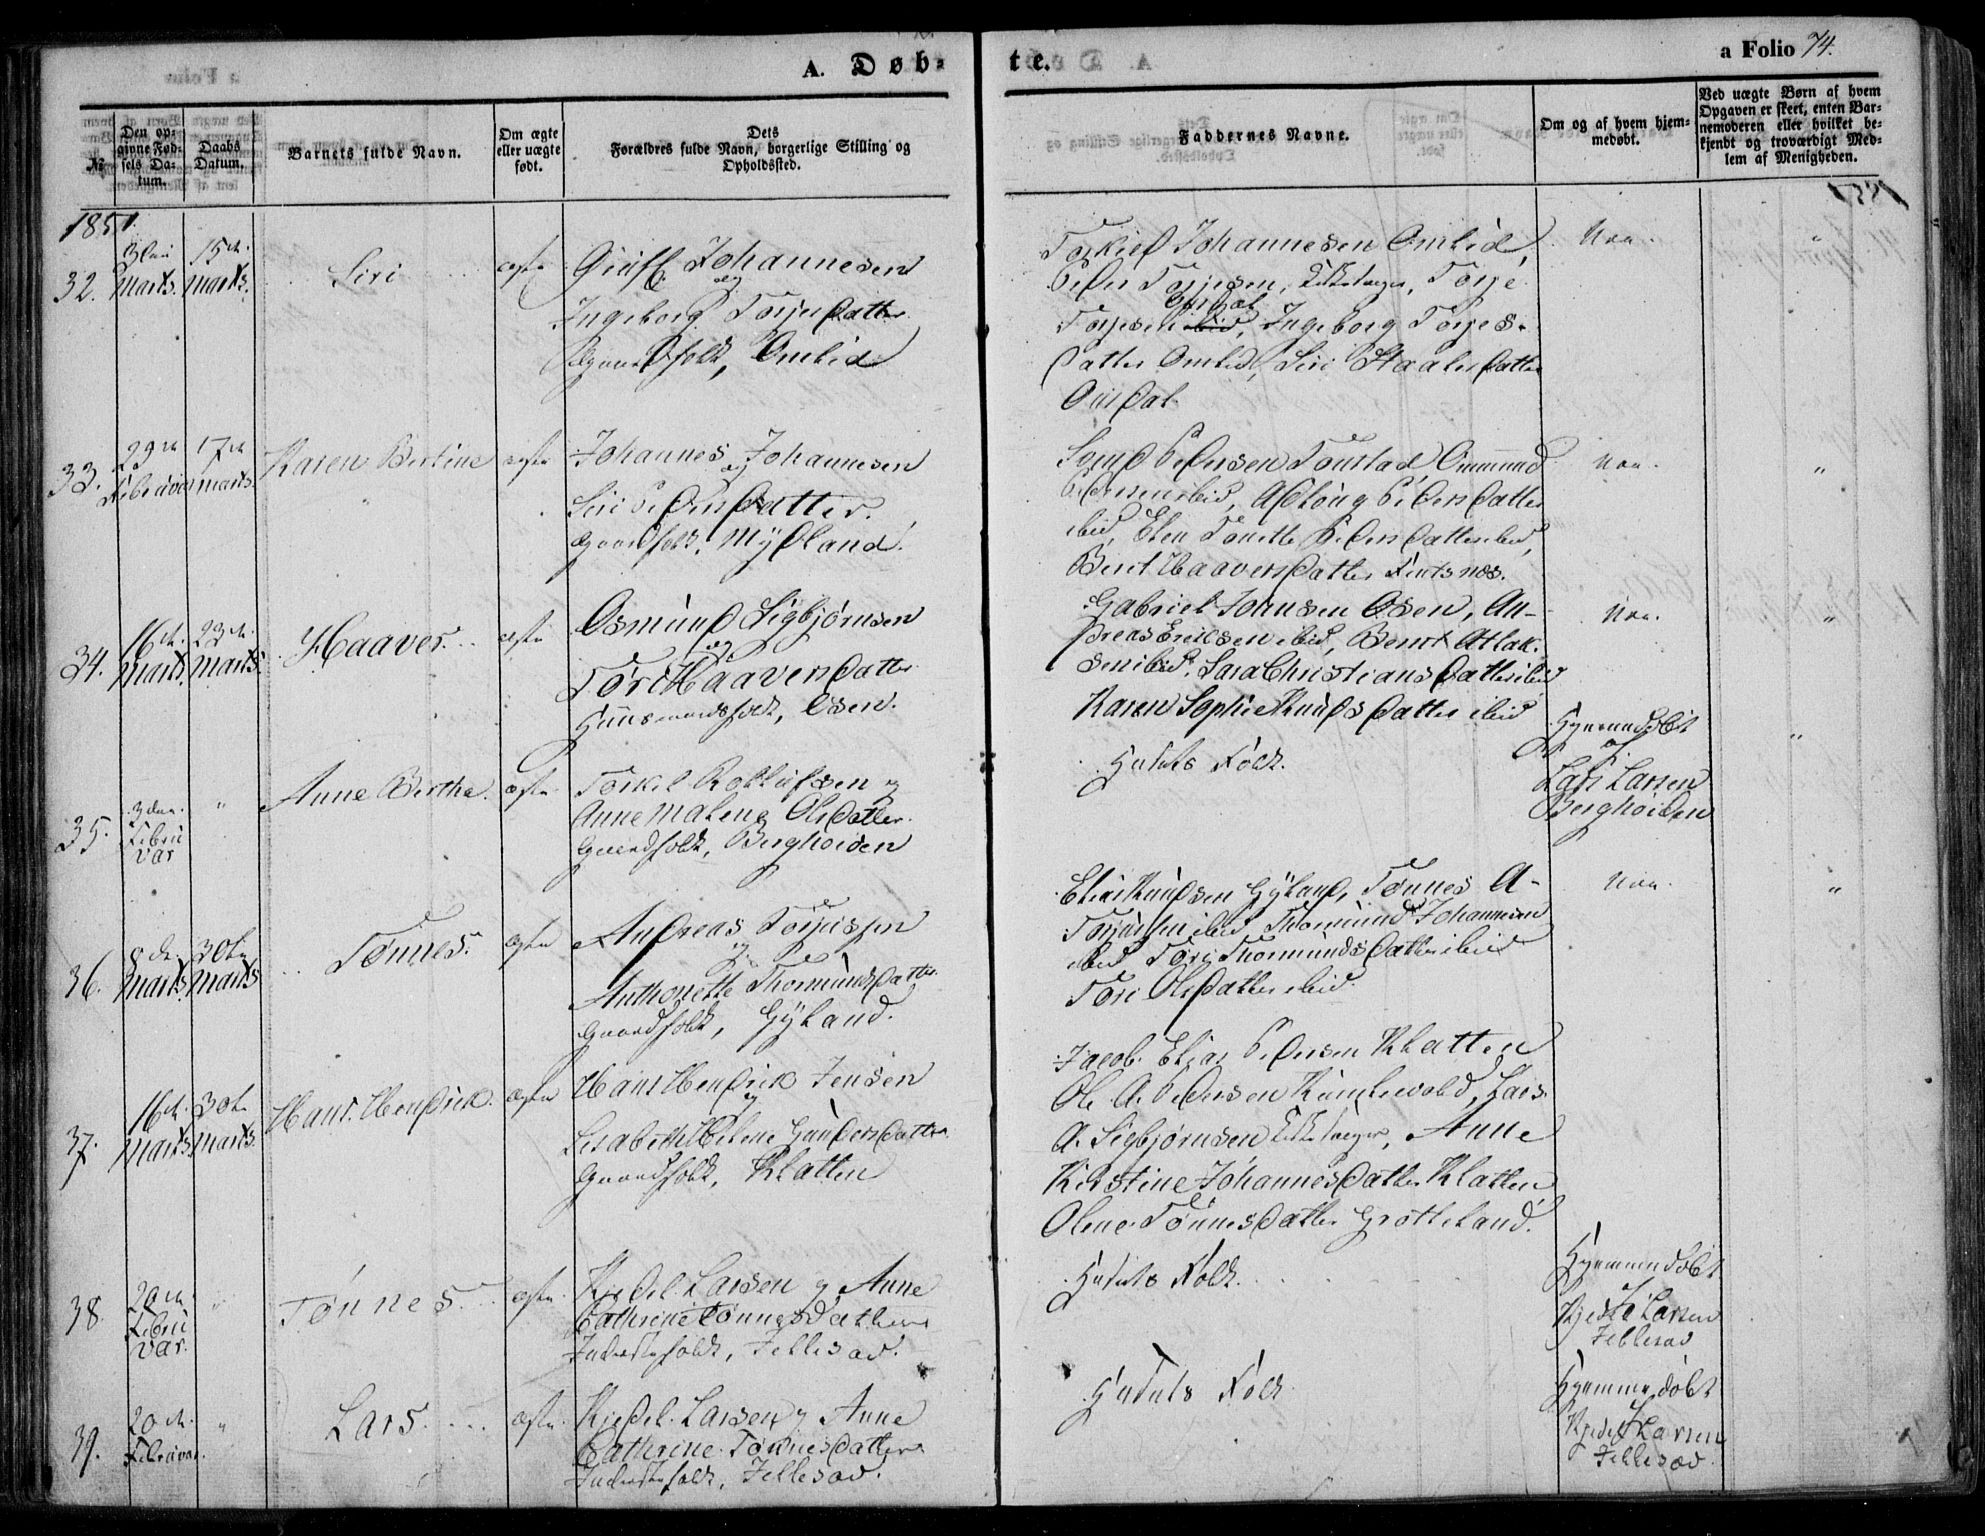 A. Døb-
te.
a Folio 74.
№
Den op-
givne Fød-
sels Da-
tum.
Daabs
Datum.
Barnets fulde Navn.
Om ægte
eller uægte
født.
Dets
Forældres fulde Navn, borgerlige Stilling og
Opholdssted.
Faddernes Navne.
Om og af hvem hjem-
medøbt.
Ved uægte Børn af hvem
Opgaven er skeet, enten Bar-
nemoderen eller hvilket be-
kjendt og troværdigt Med-
lem af Menigheden.
1851.
32.
Marts.
15de
Marts.
Siri
ægte
Johannesen
og
Ingeborg Torjesdatter
Gaardfolk, Omlid
Torkild Johannesen Omlid,
Peder Torjesen, Kirketanger, Torje
Torjesen ibid, Ingeborg Torjes-
datter Omlid, Siri Staalesdatter
Nei.
"
33.
Februar
17de
Marts.
Karen Bertine
ægte
Johannes Johannesen
og
Siri Pedersdatter
Gaardfolk, Mydland.
Pedersen Tonstad Ommund
Pedersen ibid, Adlöug Pedersdatter
ibid, Elen Tonette Pedersdatter ibid,
Berit Haaversdatter Fintsnæs.
Nei.
"
34.
16de
Marts.
23de
Marts.
Haaver.
ægte
Osmund Sigbjørnsen
og
Tori Haaversdatter
Huusmandsfolk, Osen.
Gabriel Jonnsen Osen, An-
dreas Ericksen ibid, Bernt Atlak-
sen ibid, Sara Christiansdatter ibid
Karen Sophie Knudsdatter ibid
Nei.
"
35.
3die
Febru
var
"
Anne Bertha.
ægte
Torkel Rollufsen og
Anne Malene Olsdatter
Gaardfolk, Berghöiden
Husets Folk.
Hjemmedøbt
af
Lars Larsen
Berghöiden
"
36.
8de
Marts.
30te
Marts
Tönnes.
ægte
Andreas Torjussen
og
Anthonette Thormundsdatter
Gaardfolk, Gyland.
Elias Knudsen Gyland, Tönnes A-
Torjussen ibid Thormund Johannesen
ibid Tori Thormundsdatter ibid
Tori Olsdatter ibid.
Nei.
"
37.
16de
Marts.
30te
Marts.
Hans Hendrick.
ægte
Hans Hendrick Jensen
og
Lisabeth Helene Gundersdatter
Gaardfolk, Klatten
Jacob Elias Pedersen Klatten
Ole A. Pedersen Rumlevold, Lars
A. Sigbjørnsen Kirketanger, Anne
Kirstine Johannesdatter Klatten
Olene Tönnesdatter Grötteland.
38
20de
Febru
var.
"
Tönnes.
ægte
Kjedel Larsen og Anne
Cathrine Tönnesdatter
Inderstfolk, Jellesad.
Husets Folk.
Hjemmedöbt
af
Kjedel Larsen
Jellesad
39.
20de
Februar
"
Lars.
ægte
Kjedel Larsen og Anne
Cathrine Tönnesdatter
Inderstfolk, Jellesad.
Husets Folk
Hjemmedöbt
af
Kjedel Larsen
Jellesad.